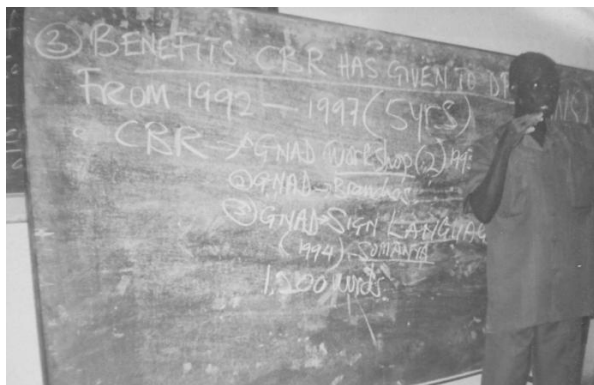 ③ BENEFITS CBR HAS GIVEN TO
FROM 1992 - 1997 (5YRS)
CBR → GNAD Workshop (2)
① GNAD - Branches
② GNAD - SIGN LANGUAG
(1994) - SOMANYA
1,500 words